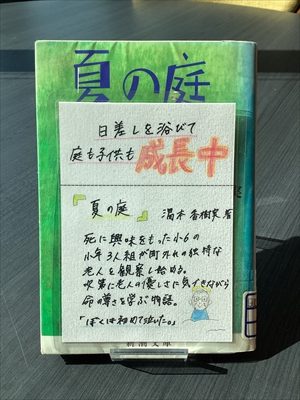 夏の庭
日差しを浴びて
庭も子供も成長中
『夏の庭』 湯本香樹実 著
死に興味をもった小6の
少年3人組が町外れの
老人を観察し始める。
次第に老人の優しさに気づきながら
命の尊さを学ぶ物語。
「ぼくは初めて泣いた。」
新潮文庫